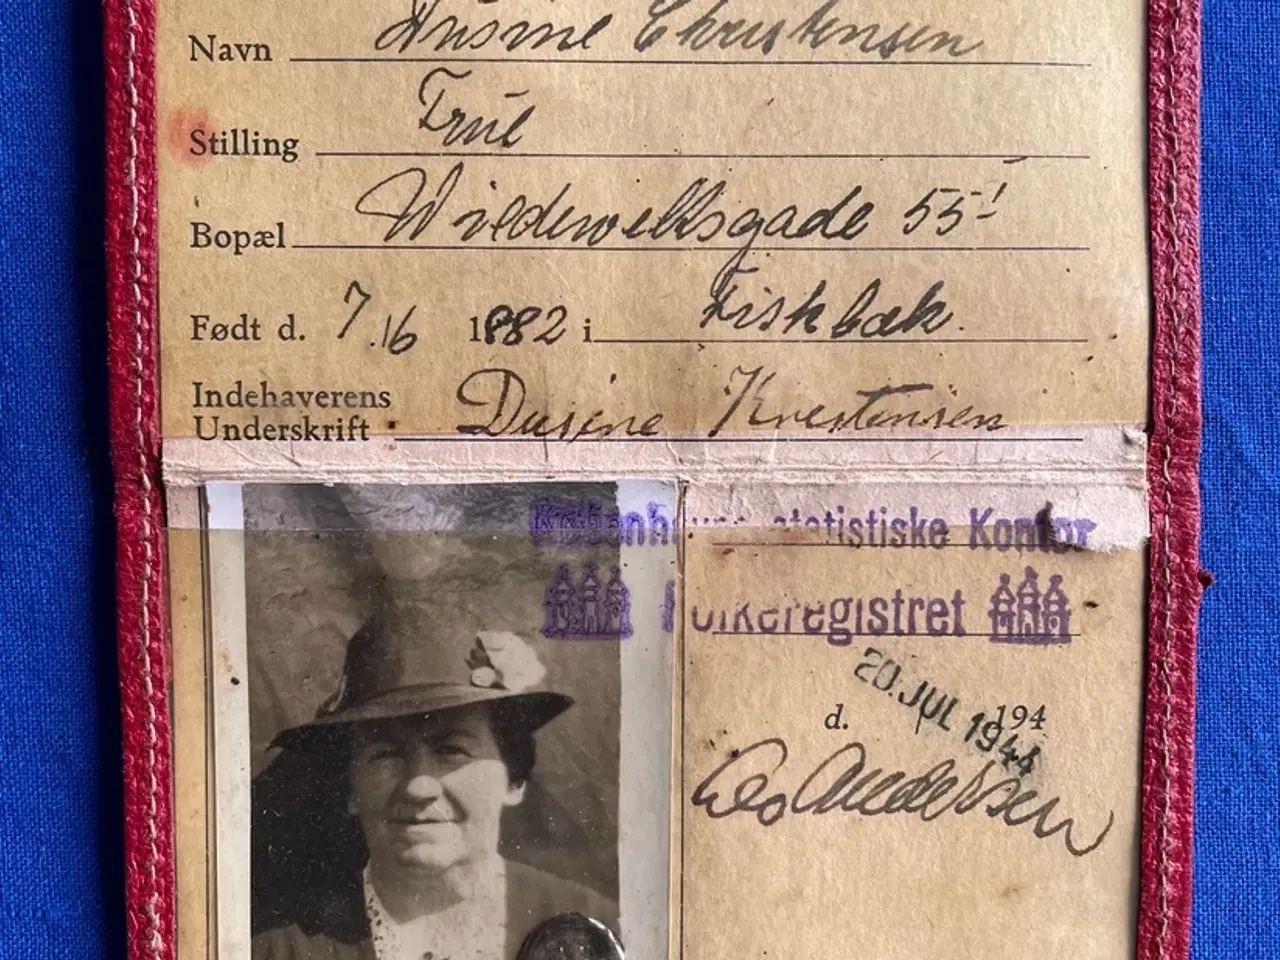 Navn Dusine Christensen
Stilling Frue
Bopæl Wildersgade 55 I
Født d. 7.16 1882 i Fiskbæk.
Indehaverens
Underskrift Dusine Krestensen
Københavns statistiske Kontor
Folkeregistret
20. JUL 1944
d. 194